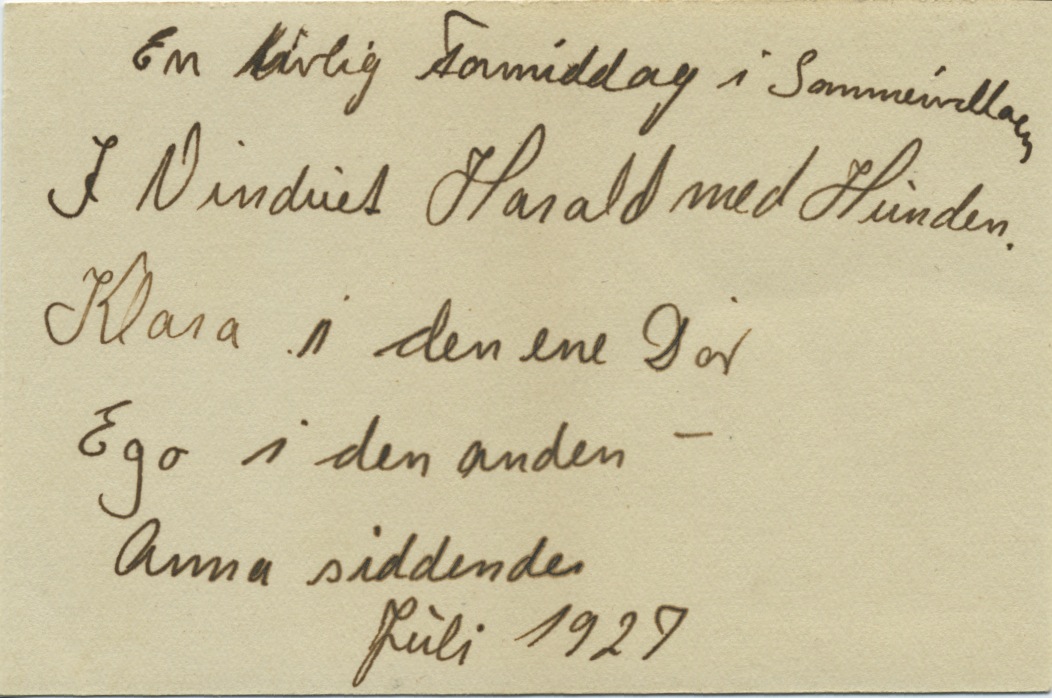 En livlig Formiddag i Sommervillaen
I Vinduet Harald med Hunden.
Klara i den ene Dør
Ego i den anden –
Anna siddende
Juli 1927